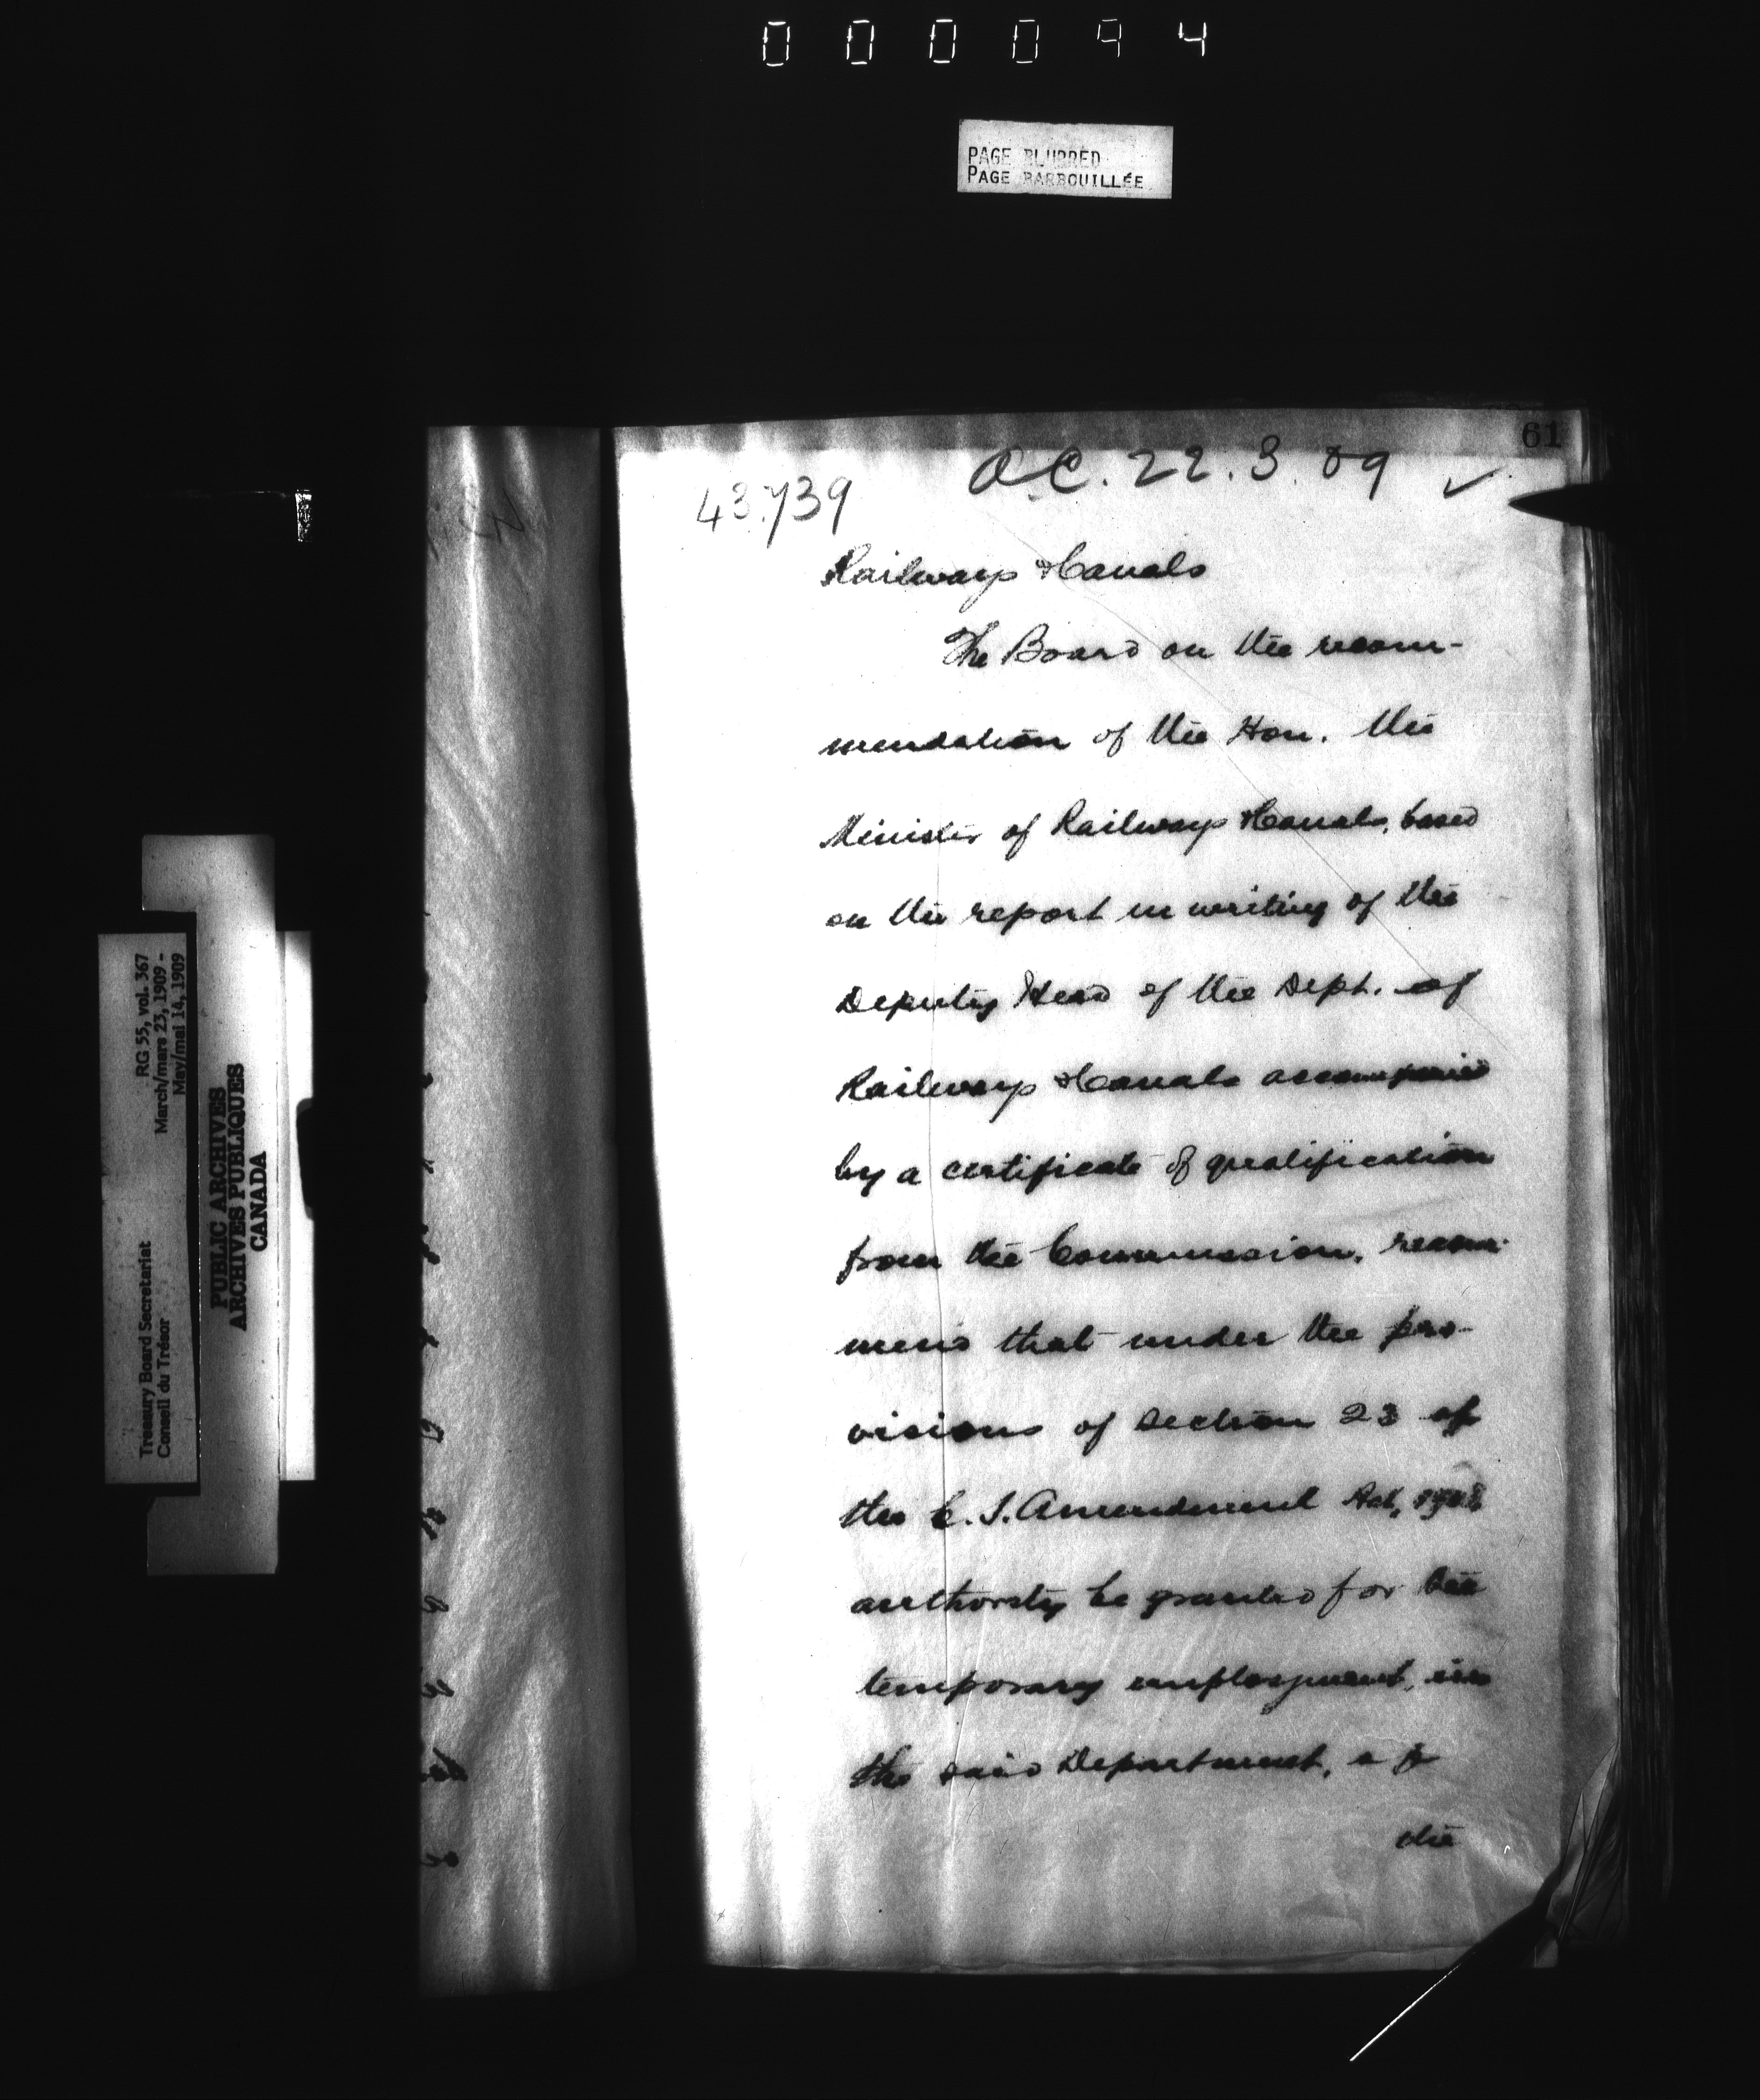 000094
PAGE BLURRED
PAGE BARBOUILLÉE
61
O.C. 22.3.09 ✓
43739
Railways & Canals
The Board on the recom-
mendation of the Hon. the
Minister of Railways & Canals, based
on the report in writing of the
Deputy Head of the Dept. of
Railways & Canals accompanied
by a certificate of qualification
from the Commission, recom-
mend that under the pro-
visions of Section 23 of
the C.S. Amendment Act, 1908
authority be granted for the
temporary employment, in
the said Department, as
the
RG 55, vol. 367
March/mars 23, 1909 -
May/mai 14, 1909
Treasury Board Secretariat
Conseil du Trésor
PUBLIC ARCHIVES
ARCHIVES PUBLIQUES
CANADA